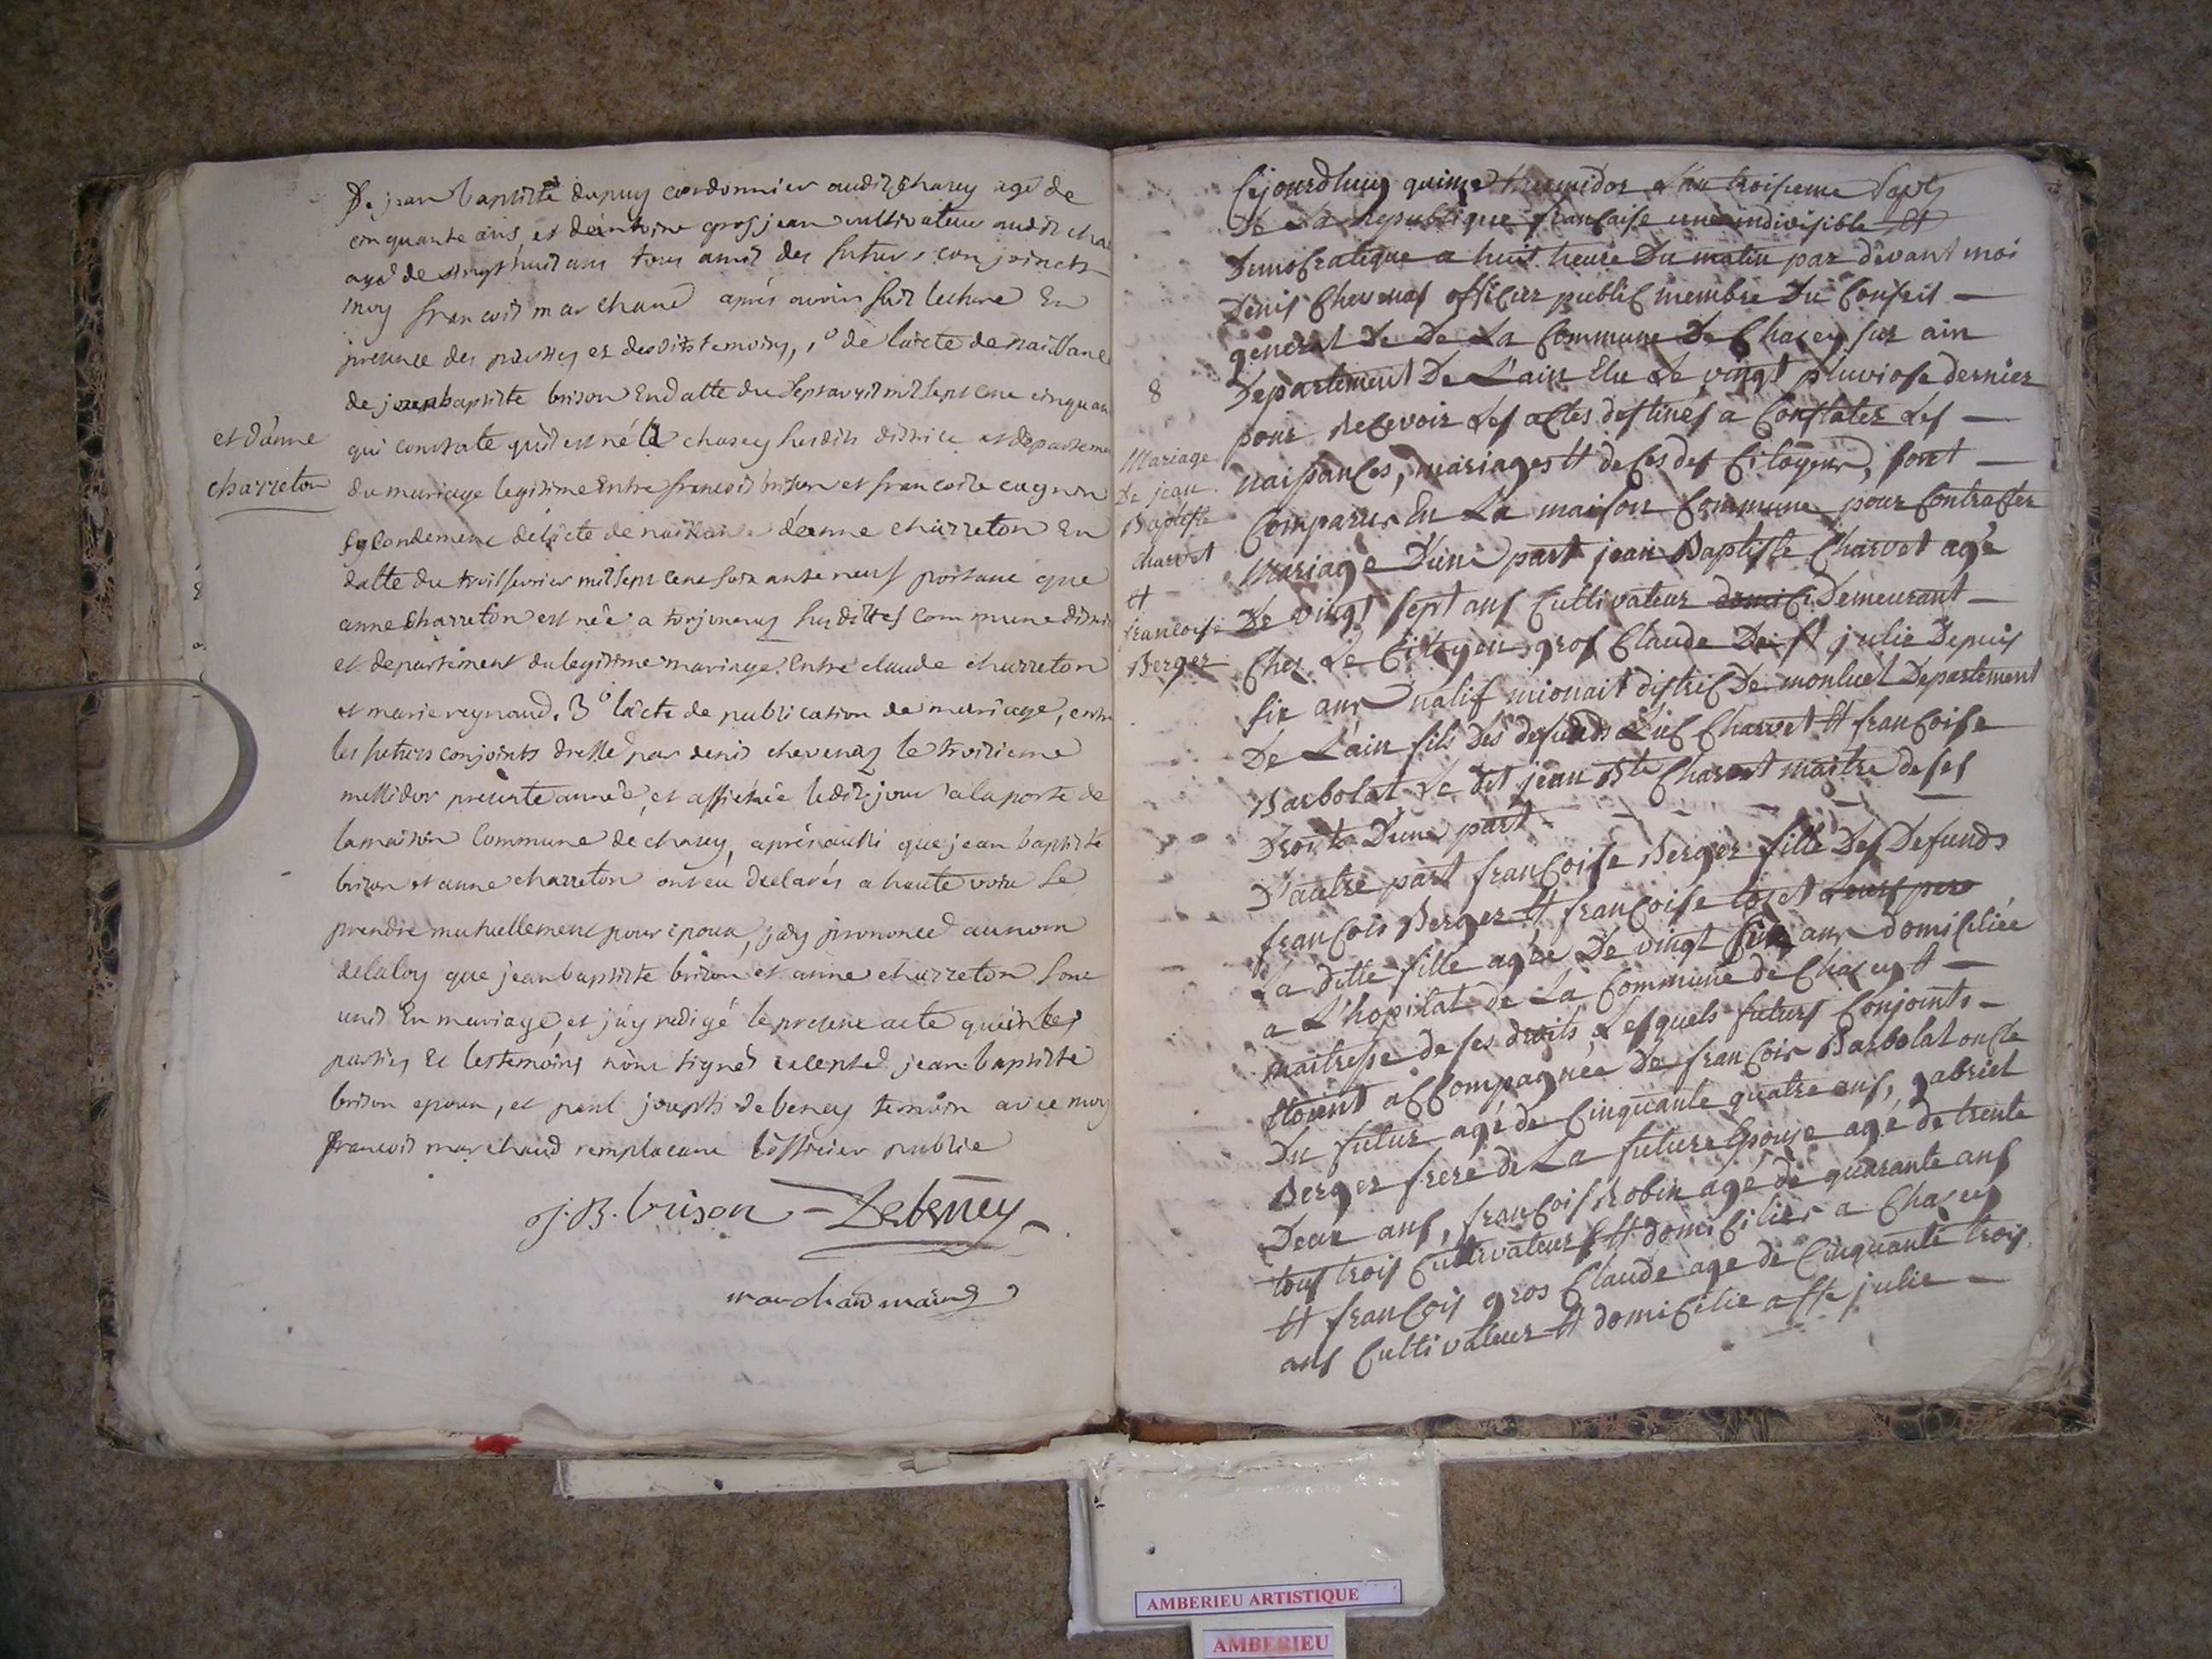 et d'anne
charreton
De jean baptiste dupuy cordonnier audit chazey agé de
cinquante ans, et deantoine grosjean cultivateur audit cha
agé de vingt huit ans tous amis des futurs conjoincts
moy francois marchand après avoir fait lecture En
presence des parties et desdits temoins, 1° de lacte de naissance
de jean baptiste brison En datte du Sept avril mil sept cent cinquan
qui constate qu'il est né à chazey susdits district et departeme
du mariage legitime Entre francois brison et francoise cagnin
Secondement de lacte de naissance d'anne charreton En
datte du trois fevrier mil sept cent soixante neuf portant que
anne charreton est née a torjonas susdittes commune district
et departement du legitime mariage Entre claude charreton
et marie reynaud. 3° lacte de publication de mariage, entre
les futurs conjoints dressé par denis chevenas le troisieme
messidor presente année, et affichée ledit jour a la porte de
la maison Commune de chazey, après aussi que jean baptiste
brison et anne charreton ont eu declarés a haute voix Se
prendre mutuellement pour epoux, j'ay prononcé au nom
de la loy que jean baptiste brison et anne charreton Sont
unis En mariage, et j'ay redigé le present acte que les
parties et les temoins n'ont signés excepté jean baptiste
brison epoux, et paul joseph debeney temoin avec moy
francois marchand remplacant l'officier public
J. B. brison - Debeney
marchand maire
8
Mariage
De jean
Baptiste
charvet
Et
francoise
Berger
Cejourdhuy quinze thermidor L'an troisieme
De La Republique francaise une indivisible Et
Democratique a huit heure Du matin par devant moi
Denis Chevenas officier public membre Du Conseil
général de De La Commune De Chazey sur ain
Departement De L'ain Elu Le vingt pluviose dernier
pour Recevoir Les actes destinés a Constater Les
naissances, mariages Et deces des Citoyens, sont
Comparus En La maison Commune pour Contracter
Mariage D'une part jean Baptiste Charvet agé
De vingt sept ans Cultivateur domici Demeurant
Chez Le Citoyen gros Claude De st julie Depuis
six ans natif mionait distric De monluel Departement
De L'ain fils Des defunds Charvet Et francoise
Barbolat Le dit jean Bte Charvet maitre de ses
Droits D'une part
D'autre part francoise Berger fille Des Defunds
francois Berger Et francoise Leurs pere
La ditte fille agée De vingt six ans domiciliée
a L'hopital de La Commune de Chazey Et
maitresse de ses droits, Lesquels futurs Conjoints
Etoient accompagnée De francois Barbolat oncle
Du futur agé de Cinquante quatre ans, gabriel
Berger frere de La future Epouse agé de trente
Deux ans, francois Robin agé de quarante ans
tous trois Cultivateurs Et domiciliés a Chazey
Et francois gros Claude age de Cinquante trois
ans Cultivateur Et domicilie a ste julie
AMBERIEU ARTISTIQUE
AMBERIEU